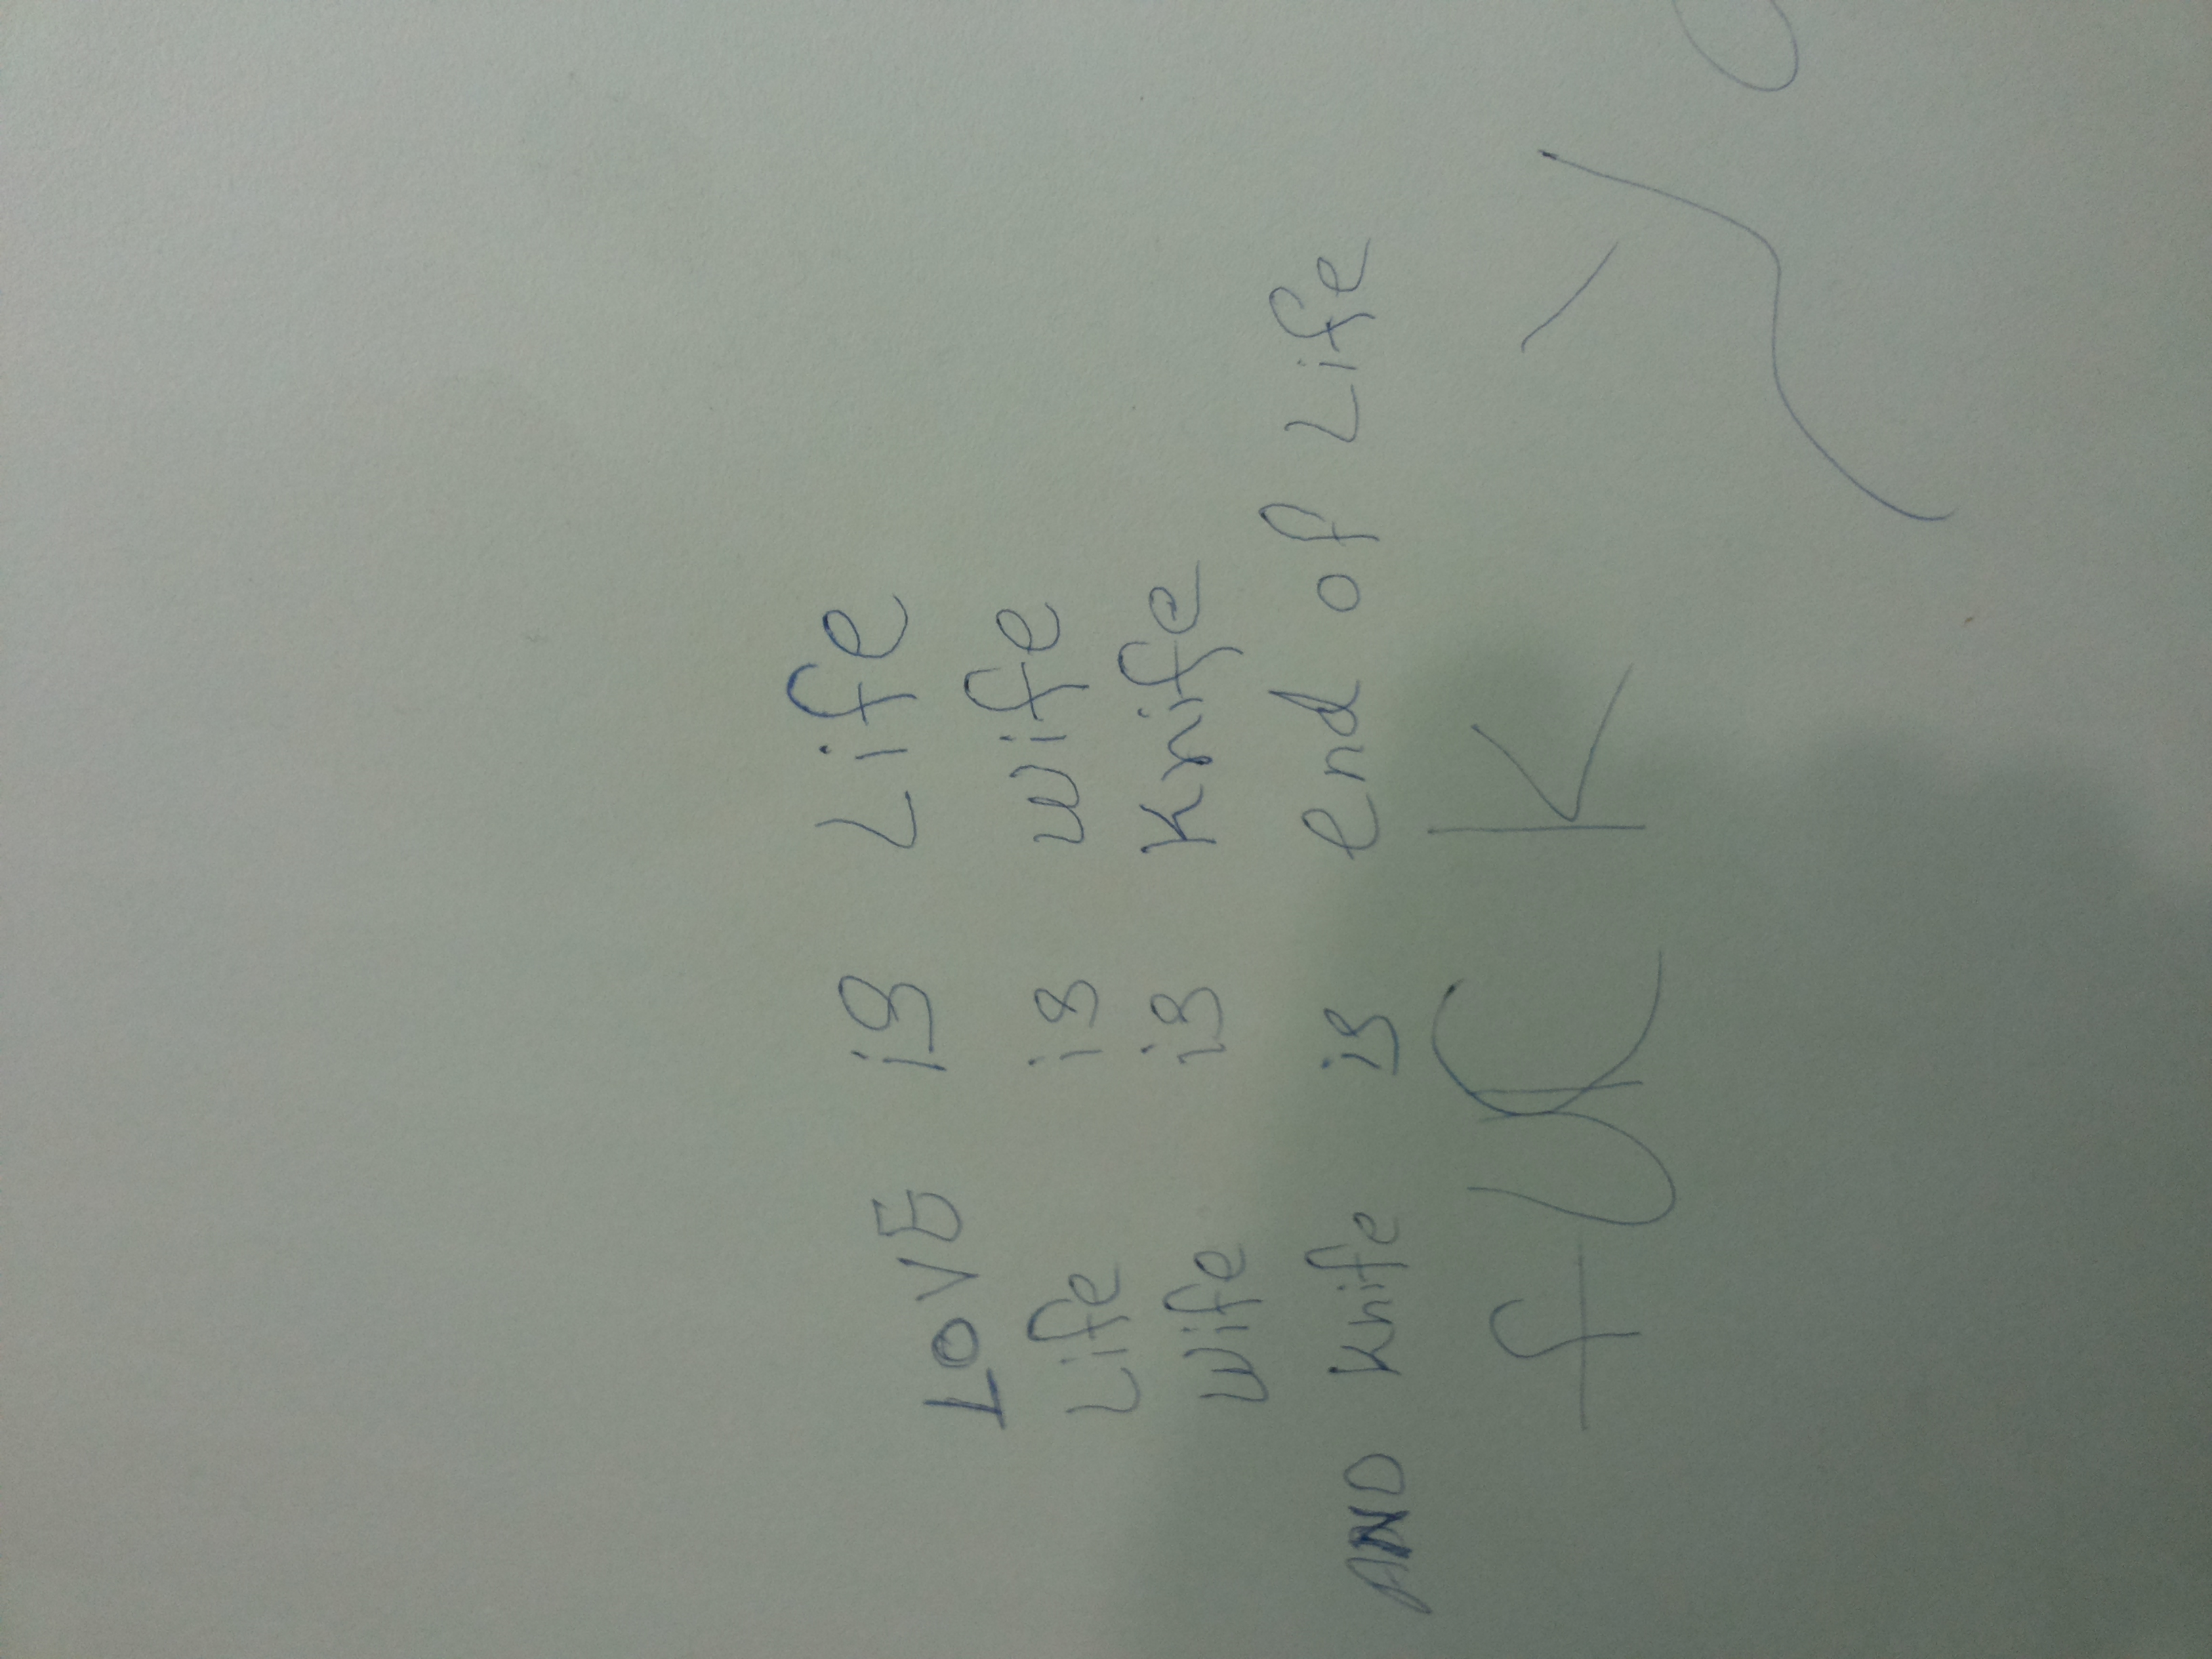 LOVE is Life
Life is wife
wife is Knife
AND Knife is end of Life
fUCK